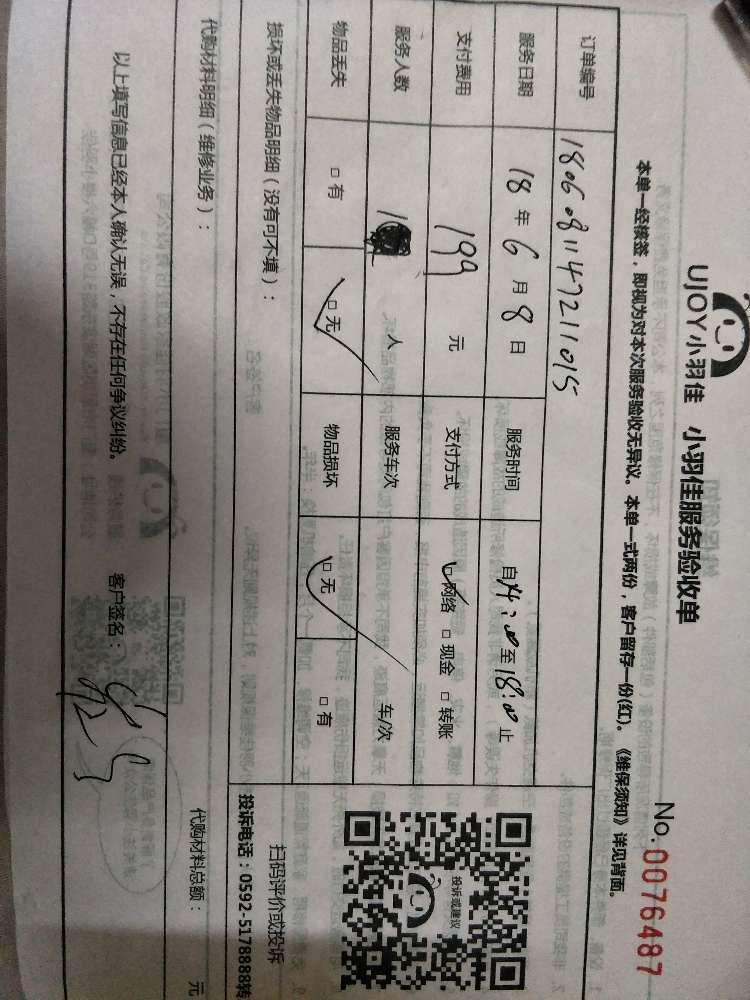 UJOY小羽佳 小羽佳服务验收单
No.0076487
本单一经接签，即视为对本次服务验收无异议。本单一式两份，客户留存一份(红)。《维保须知》详见背面。
订单编号 1806081147211015
服务日期 18 年 6 月 8 日 服务时间 自14:00至18:00止
支付费用 199 元 支付方式 □网络 □现金 □转账
服务人数 1 人 服务车次 车/次
物品丢失 □有 □无 物品损坏 □无 □有
损坏或丢失物品明细（没有可不填）：
投诉或建议
扫码评价或投诉
投诉电话：0592-5178888转
代购材料明细（维修业务）： 代购材料总额： 元
以上填写信息已经本人确认无误，不存在任何争议纠纷。 客户签名：